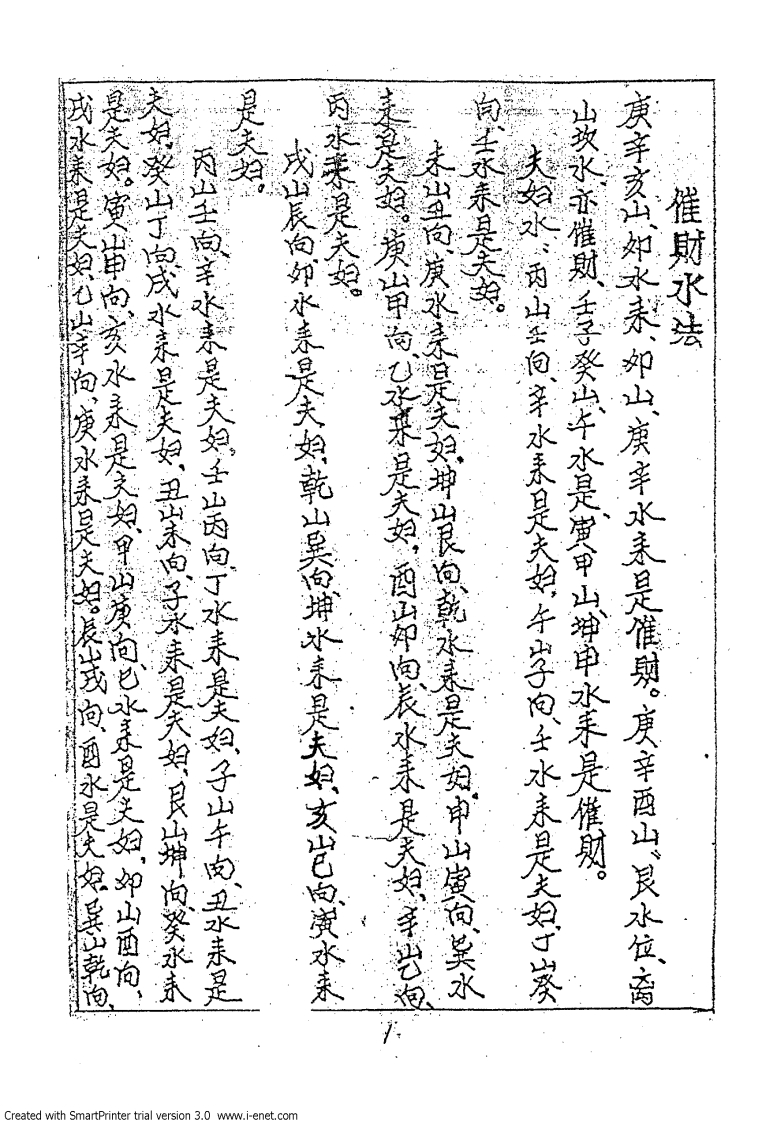 催財水法
庚辛亥山、卯水来、卯山、庚辛水来是催财。庚辛酉山、艮水位、离
山坎水、亦催财、壬子癸山、午水是、寅甲山、坤申水来是催财。
夫妇水：丙山壬向、辛水来是夫妇，午山子向、壬水来是夫妇、丁山癸
向、壬水来是夫妇。
未山丑向、庚水来是夫妇，坤山艮向、乾水来是夫妇，申山寅向、巽水
来是夫妇。庚山甲向、乙水来是夫妇，酉山卯向、辰水来是夫妇、辛山乙向、
丙水来是夫妇。
戌山辰向、卯水来是夫妇，乾山巽向、坤水来是夫妇、亥山巳向、寅水来
是夫妇。
丙山壬向、辛水来是夫妇，壬山丙向、丁水来是夫妇、子山午向、丑水来是
夫妇，癸山丁向、戌水来是夫妇，丑山未向、子水来是夫妇，艮山坤向、癸水来
是夫妇。寅山申向、亥水来是夫妇、甲山庚向、巳水来是夫妇，卯山酉向、
戌水来是夫妇、乙山辛向、庚水来是夫妇。辰山戌向、酉水是夫妇。巽山乾向、
1
Created with SmartPrinter trial version 3.0 www.i-enet.com